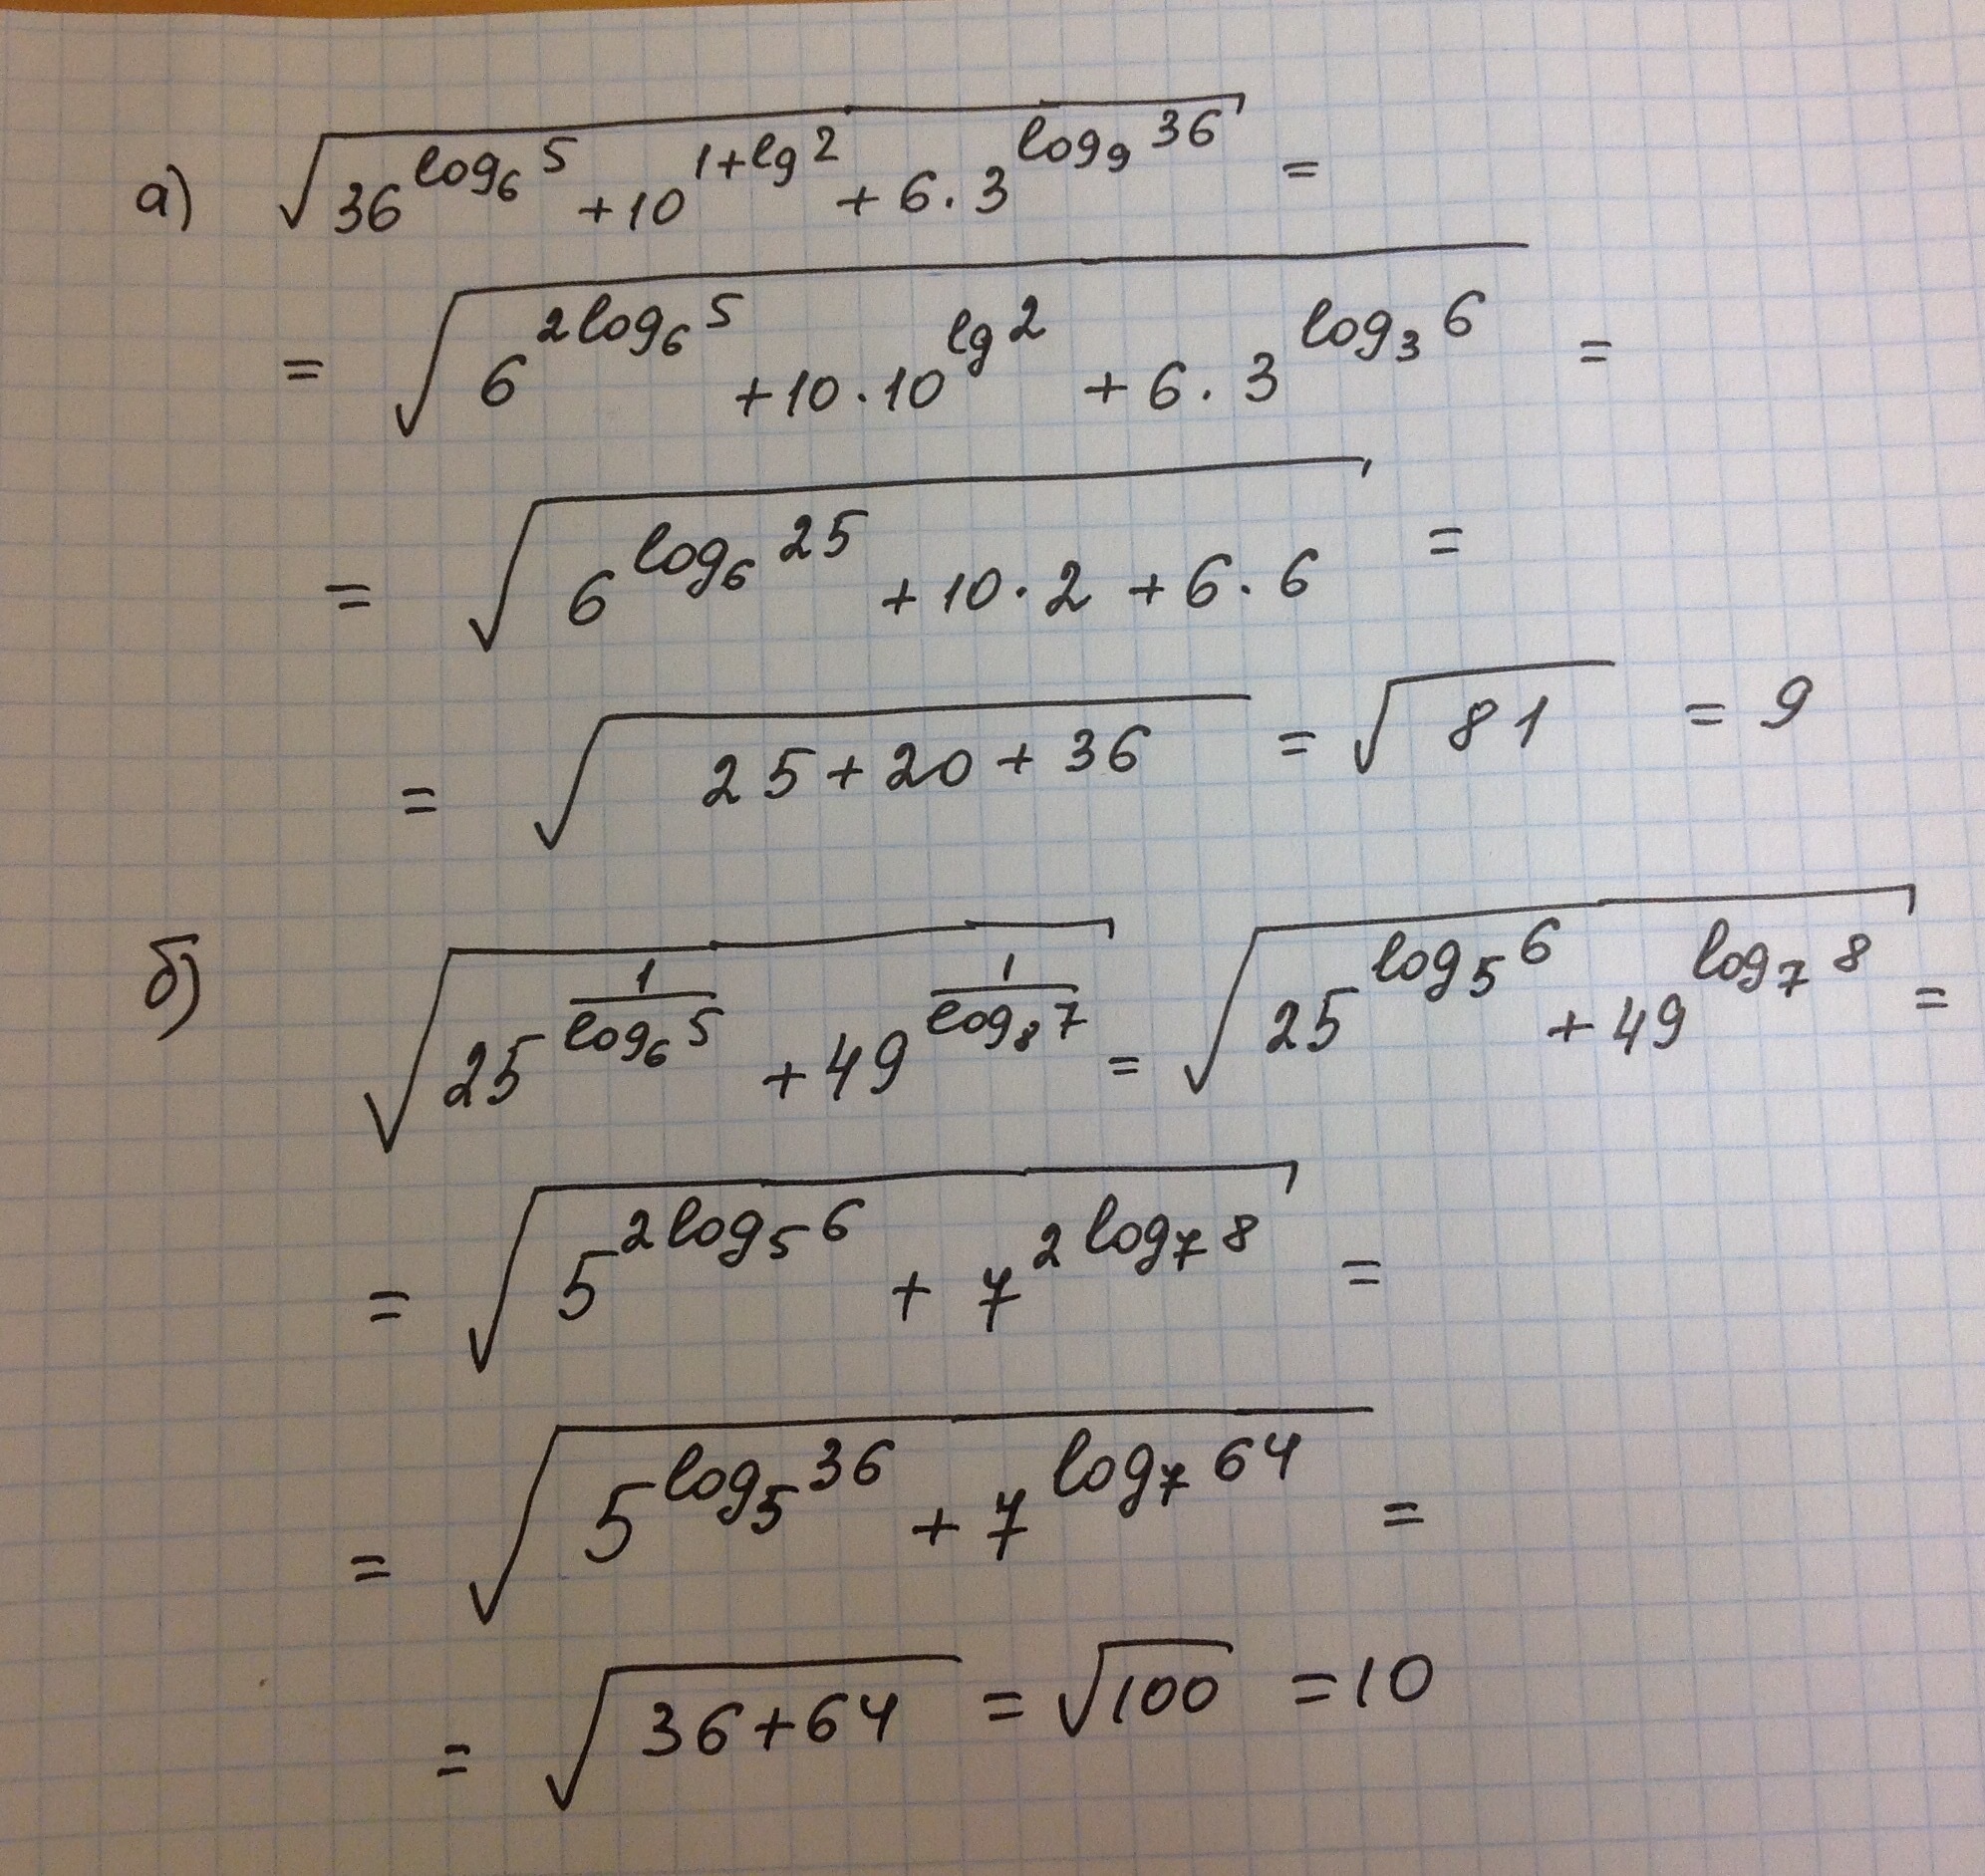 а) √(36^(log₆5) + 10^(1+lg2) + 6·3^(log₉36)) =
= √(6^(2log₆5) + 10·10^(lg2) + 6·3^(log₃6)) =
= √(6^(log₆25) + 10·2 + 6·6) =
= √(25+20+36) = √(81) = 9
б) √(25^(1/log₆5) + 49^(1/log₈7)) = √(25^(log₅6) + 49^(log₇8)) =
= √(5^(2log₅6) + 7^(2log₇8)) =
= √(5^(log₅36) + 7^(log₇64)) =
= √(36+64) = √(100) = 10